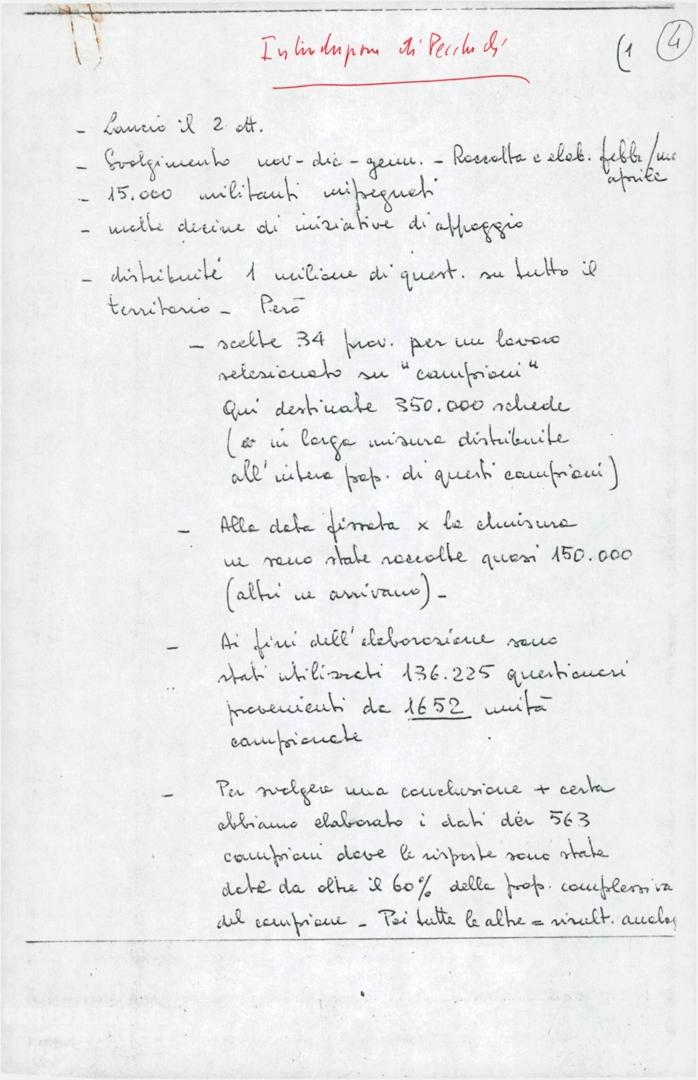 Introduzione di Pecchioli (1 4
- Lancio il 2 ott.
- Svolgimento nov-dic-genn. - Raccolta e elab. febbr/
aprile
- 15.000 militanti impegnati
- molte decine di iniziative di appoggio
- distribuite 1 milione di quest. su tutto il
territorio - Però
- scelte 34 prov. per un lavoro
selezionato su "campioni"
Qui destinate 350.000 schede
( in larga misura distribuite
all'intera pop. di questi campioni)
- Alla data fissata x la chiusura
ne sono state raccolte quasi 150.000
(altri ne arrivano) -
- Ai fini dell'elaborazione sono
stati utilizzati 136.225 questionari
provenienti da 1652 unità
campionate
- Per svolgere una conclusione + certa
abbiamo elaborato i dati dei 563
campioni dove le risposte sono state
date da oltre il 60% della pop. complessiva
del campione - Poi tutte le altre = risult. analog